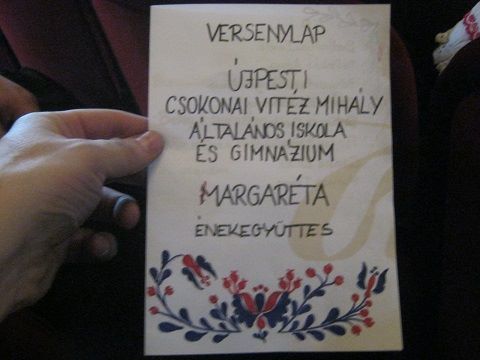 VERSENYLAP
ÚJPESTI
CSOKONAI VITÉZ MIHÁLY
ÁLTALÁNOS ISKOLA
ÉS GIMNÁZIUM
MARGARÉTA
ÉNEKEGYÜTTES